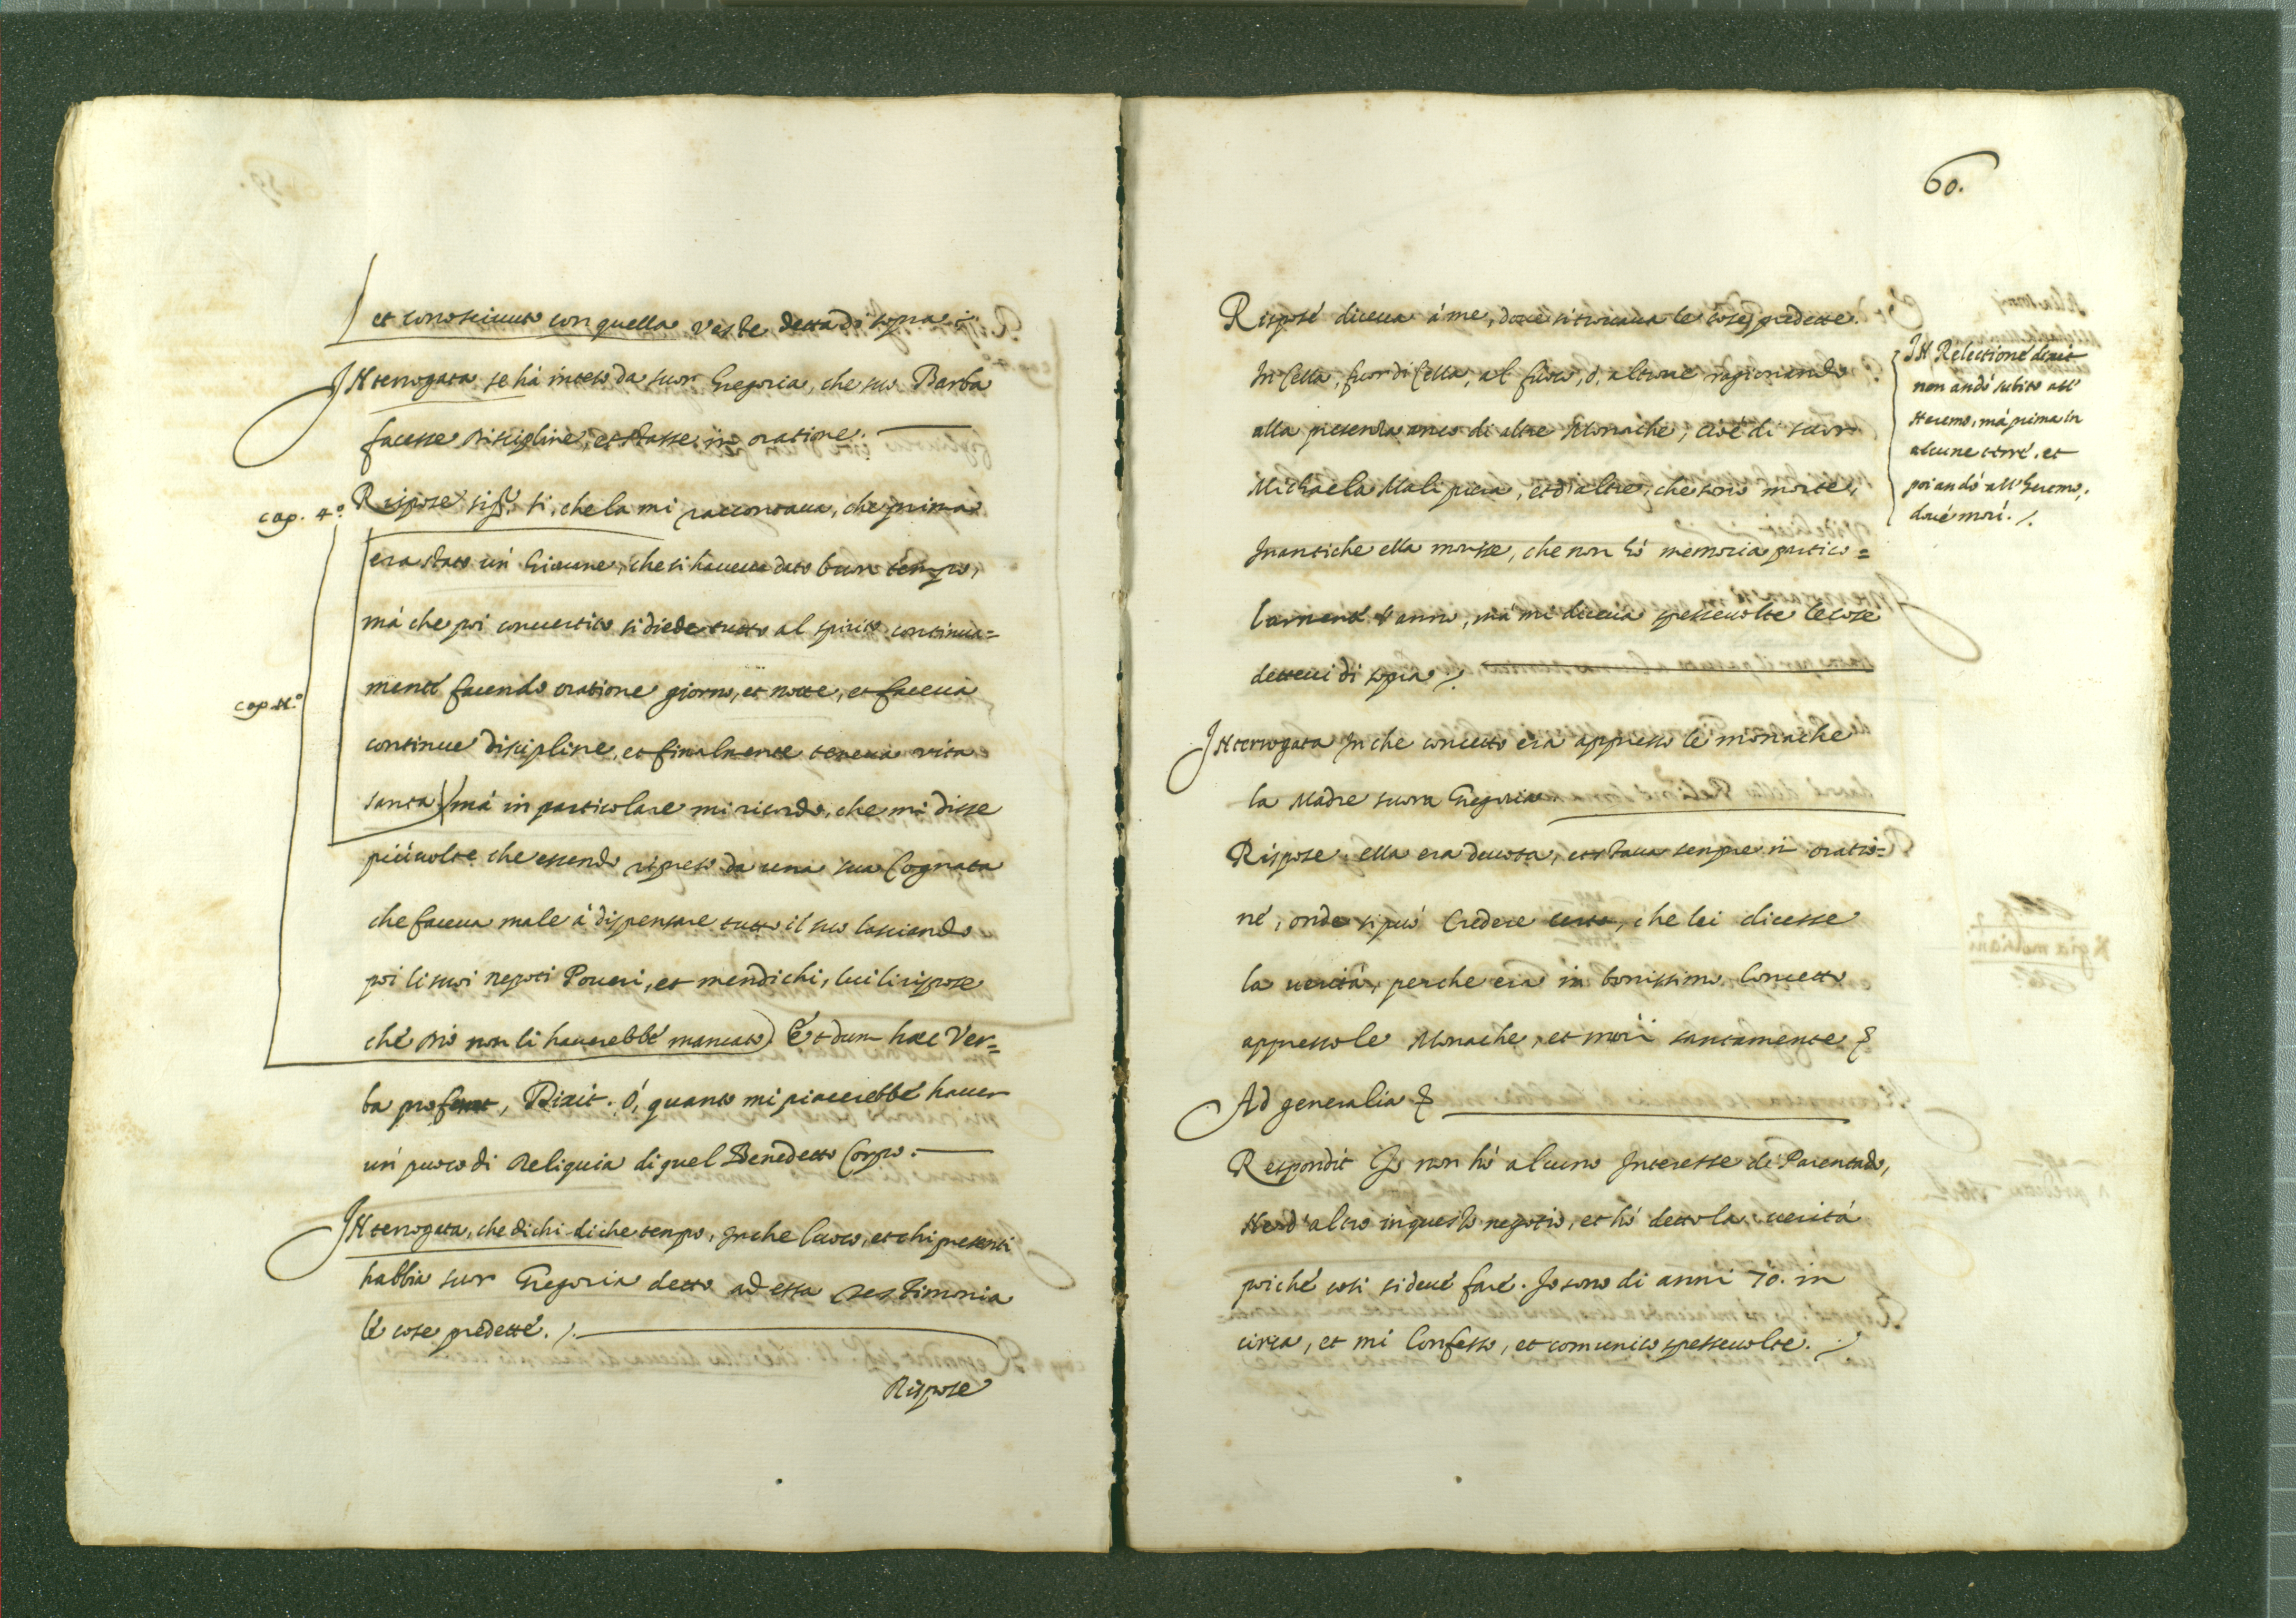 et conosciuto con quella veste detta di sopra.
Interrogata se hà inteso da suor Gregoria, che suo Barba
facesse discipline, et stasse in oratione.
cap. 4.º
Rispose sig.r si, che la mi raccontaua, che prima
era stato un' Giouane, che si haueua dato buon tempo,
mà che poi conuertito si diede tutto al spirito continua=
cap. 11.º
mente facendo oratione giorno, et notte, et faceua
continue discipline, et finalmente teneua vita
santa) mà in particolare mi ricordo, che mi disse
più uolte che essendo ripreso da una sua Cognata
che faceua male à dispensare tutto il suo lasciando
poi li suoi nepoti Poueri, et mendichi, lui li rispose
che Dio non li hauerebbe mancato) Et dum haec Ver=
ba profert, Dixit. ó, quanto mi piacerebbe hauer
un' puoco di Reliquia di quel Benedetto Corpo.
Interrogata, che dichi di che tempo, In che luoco, et chi presenti
habbia suor Gregoria detto ad essa Testimonia
le cose predette.
Rispose
60.
Rispose diceua à me, doue si trouaua le cose predette.
In Cella, fuor di Cella, al fuoco, ò, altroue ragionando
alla presenza anco di altre Monache, cioè di suor
Michaela Malipiera, et d'altre, che sono morte,
Inanti che ella morisse, che non hò memoria partico=
larmente l'anno, mà mi diceua spesse uolte le cose
detteui di sopra.
In Relectione dixit
non andò subito all'
Heremo, mà prima in
alcune terre, et
poi andò all'Heremo,
doue morì.
Interrogata In che concetto era appresso le monache
la Madre suora Gregoria
Rispose, ella era deuota, et staua sempre in oratio=
ne, onde si può Credere certo, che lei dicesse
la uerità, perche era in bonissimo Concetto
appresso le Monache, et morì santamente
Ad generalia
Respondit Io non hò alcuno Interesse di Parentado,
Ne d'altro in questo negotio, et hò detto la uerità
poiche cosi si deue fare. Io sono di anni 70. in
circa, et mi Confesso, et comunico spesse uolte.